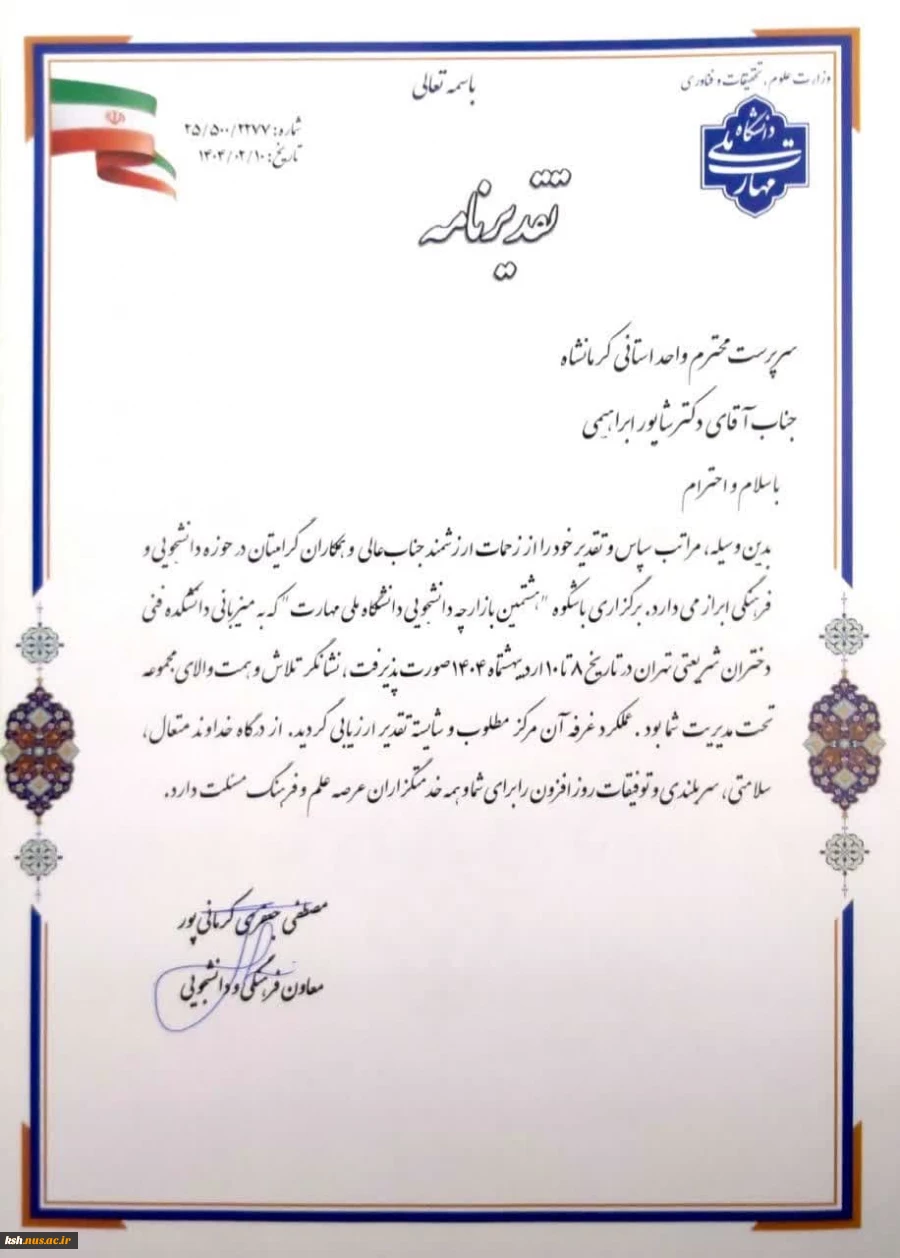 باسمه تعالی
وزارت علوم، تحقیقات و فناوری
دانشگاه
ملی
مهارت
شماره: ۲۵/۵۰۰/۲۲۷۷
تاریخ: ۱۴۰۴/۰۲/۱۰
تقدیرنامه
سرپرست محترم واحد استانی کرمانشاه
جناب آقای دکتر شاپور ابراهیمی
باسلام و احترام
بدین وسیله، مراتب سپاس و تقدیر خود را از زحمات ارزشمند جناب عالی و همکاران گرامیتان در حوزه دانشجویی و
فرهنگی ابراز می دارد. برگزاری باشکوه "هشتمین بازارچه دانشجویی دانشگاه ملی مهارت" که به میزبانی دانشکده فنی
دختران شریعتی تهران در تاریخ ۸ تا ۱۰ اردیبهشتماه ۱۴۰۴ صورت پذیرفت، نشانگر تلاش و همت والای مجموعه
تحت مدیریت شما بود. عملکرد غرفه آن مرکز مطلوب و شایسته تقدیر ارزیابی گردید. از درگاه خداوند متعال،
سلامتی، سربلندی و توفیقات روز افزون را برای شما و همه خدمتگزاران عرصه علم و فرهنگ مسئلت دارد.
مصطفی جعفری کرمانی پور
معاون فرهنگی و دانشجویی
ksh.nus.ac.ir